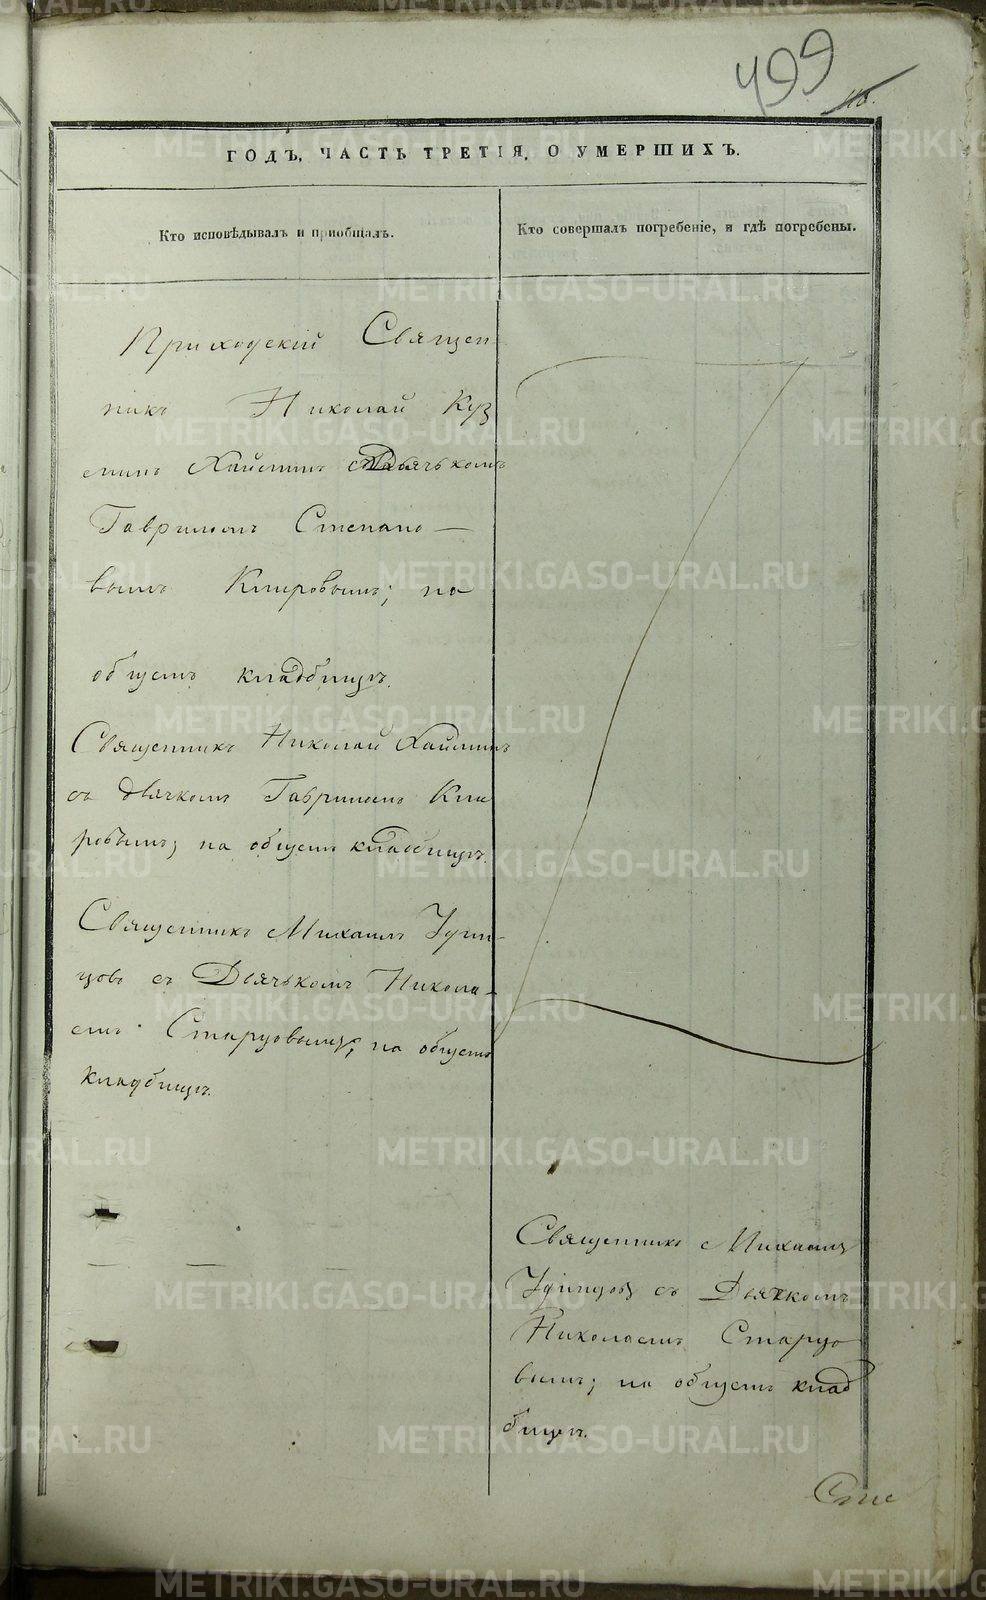 499
116.
ГОДЪ, ЧАСТЬ ТРЕТІЯ, О УМЕРШИХЪ.
Кто исповѣдывалъ и пріобщалъ.
Кто совершалъ погребеніе, и гдѣ погребены.
Приходскій Священ
никъ Николай Куз
минъ съ Дьячькомъ
Гавриломъ Степано—
вымъ Кмировымъ; на
общемъ кладбищѣ.
Священникъ Николай
съ дьячкомъ Гавриломъ Кми
ровымъ; на общемъ кладбищѣ.
Священникъ Михаилъ Удин-
цовъ съ Дьячькомъ Никола-
емъ Старцовымъ; на общемъ
кладбищѣ.
Священникъ Михаилъ
Удинцовъ съ Дьячкомъ
Николаемъ Старцо
вымъ; на общемъ клад
бищѣ.
METRIKI.GASO-URAL.RU